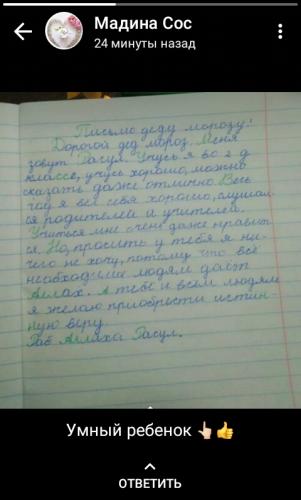 Мадина Сос
24 минуты назад
Письмо деду морозу!
Дорогой дед мороз. Меня
зовут Расул. Учусь я во 2 д
классе, учусь хорошо, можно
сказать даже отлично. Весь
год я вел себя хорошо, слушал-
ся родителей и учителей.
Учиться мне очень даже нравит-
ся. Но, просить у тебя я ни-
чего не хочу, потому что всё
необходимые людям даёт
Аллах. А тебе и всем людям
я желаю приобрести истин-
ную веру.
Раб Аллаха Расул.
Умный ребенок 👆🏻👍
ОТВЕТИТЬ